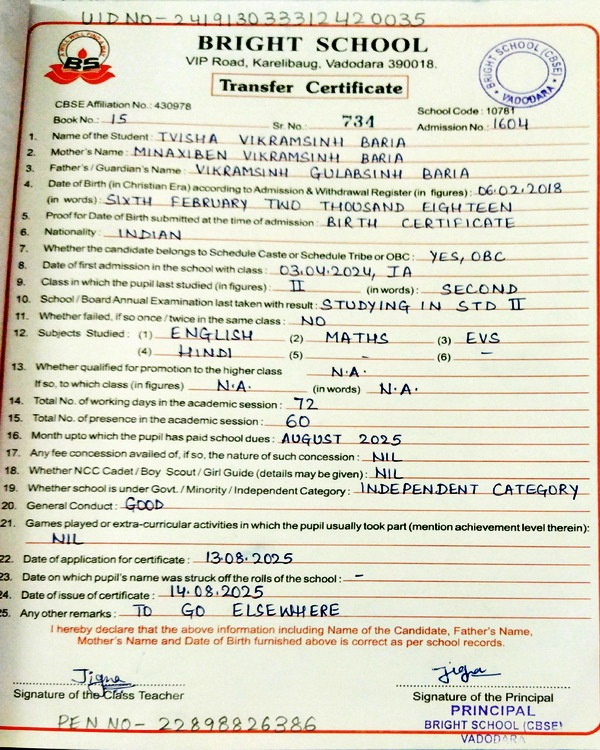 UID NO- 241913033312420035
BS
BRIGHT SCHOOL
VIP Road, Karelibaug, Vadodara 390018.
Transfer Certificate
BRIGHT SCHOOL (CBSE) VADODARA
CBSE Affiliation No.: 430978 School Code : 10781
Book No.: 15 Sr No.: 734 Admission No.: 1604
1. Name of the Student : TVISHA VIKRAMSINH BARIA
2. Mother's Name : MINAXIBEN VIKRAMSINH BARIA
3. Father's / Guardian's Name : VIKRAMSINH GULABSINH BARIA
4. Date of Birth (in Christian Era) according to Admission & Withdrawal Register (in figures) : 06.02.2018
(in words) : SIXTH FEBRUARY TWO THOUSAND EIGHTEEN
5. Proof for Date of Birth submitted at the time of admission : BIRTH CERTIFICATE
6. Nationality : INDIAN
7. Whether the candidate belongs to Schedule Caste or Schedule Tribe or OBC : YES, OBC
8. Date of first admission in the school with class : 03.04.2024, IA
9. Class in which the pupil last studied (in figures) : II (in words) : SECOND
10. School / Board Annual Examination last taken with result : STUDYING IN STD II
11. Whether failed, if so once / twice in the same class : NO
12. Subjects Studied : (1) ENGLISH (2) MATHS (3) EVS
(4) HINDI (5) - (6) -
13. Whether qualified for promotion to the higher class N.A.
If so, to which class (in figures) N.A. (in words) N.A.
14. Total No. of working days in the academic session : 72
15. Total No. of presence in the academic session : 60
16. Month upto which the pupil has paid school dues : AUGUST 2025
17. Any fee concession availed of, if so, the nature of such concession : NIL
18. Whether NCC Cadet / Boy Scout / Girl Guide (details may be given) : NIL
19. Whether school is under Govt. / Minority / Independent Category : INDEPENDENT CATEGORY
20. General Conduct : GOOD
21. Games played or extra-curricular activities in which the pupil usually took part (mention achievement level therein):
NIL
22. Date of application for certificate : 13.08.2025
23. Date on which pupil's name was struck off the rolls of the school : -
24. Date of issue of certificate : 14.08.2025
25. Any other remarks : TO GO ELSEWHERE
I hereby declare that the above information including Name of the Candidate, Father's Name,
Mother's Name and Date of Birth furnished above is correct as per school records.
Jigna jigna
Signature of the Class Teacher Signature of the Principal
PRINCIPAL
BRIGHT SCHOOL (CBSE)
VADODARA
PEN NO- 22898826386